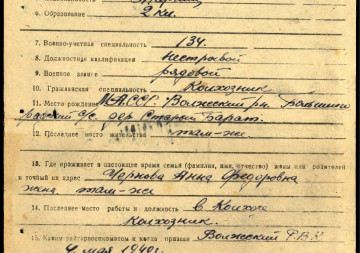 6. Образование
2 кл.
7. Военно-учетная специальность 134.
8. Должностная квалификация нестроевой
9. Военное звание рядовой
10. Гражданская специальность Колхозник
11. Место рождения М.А.С.С.Р. Волжский рн.
с/с дер Старый
12. Последнее место жительства там-же.
13. Где проживает в настоящее время семья (фамилия, имя, отчество) жены или родителей
и точный их адрес Чернова Анна Федоровна
жена там-же
14. Последнее место работы и должность в
Колхозник.
15. Каким райгорвоенкоматом и когда призван Волжский Р.В.К
4 мая